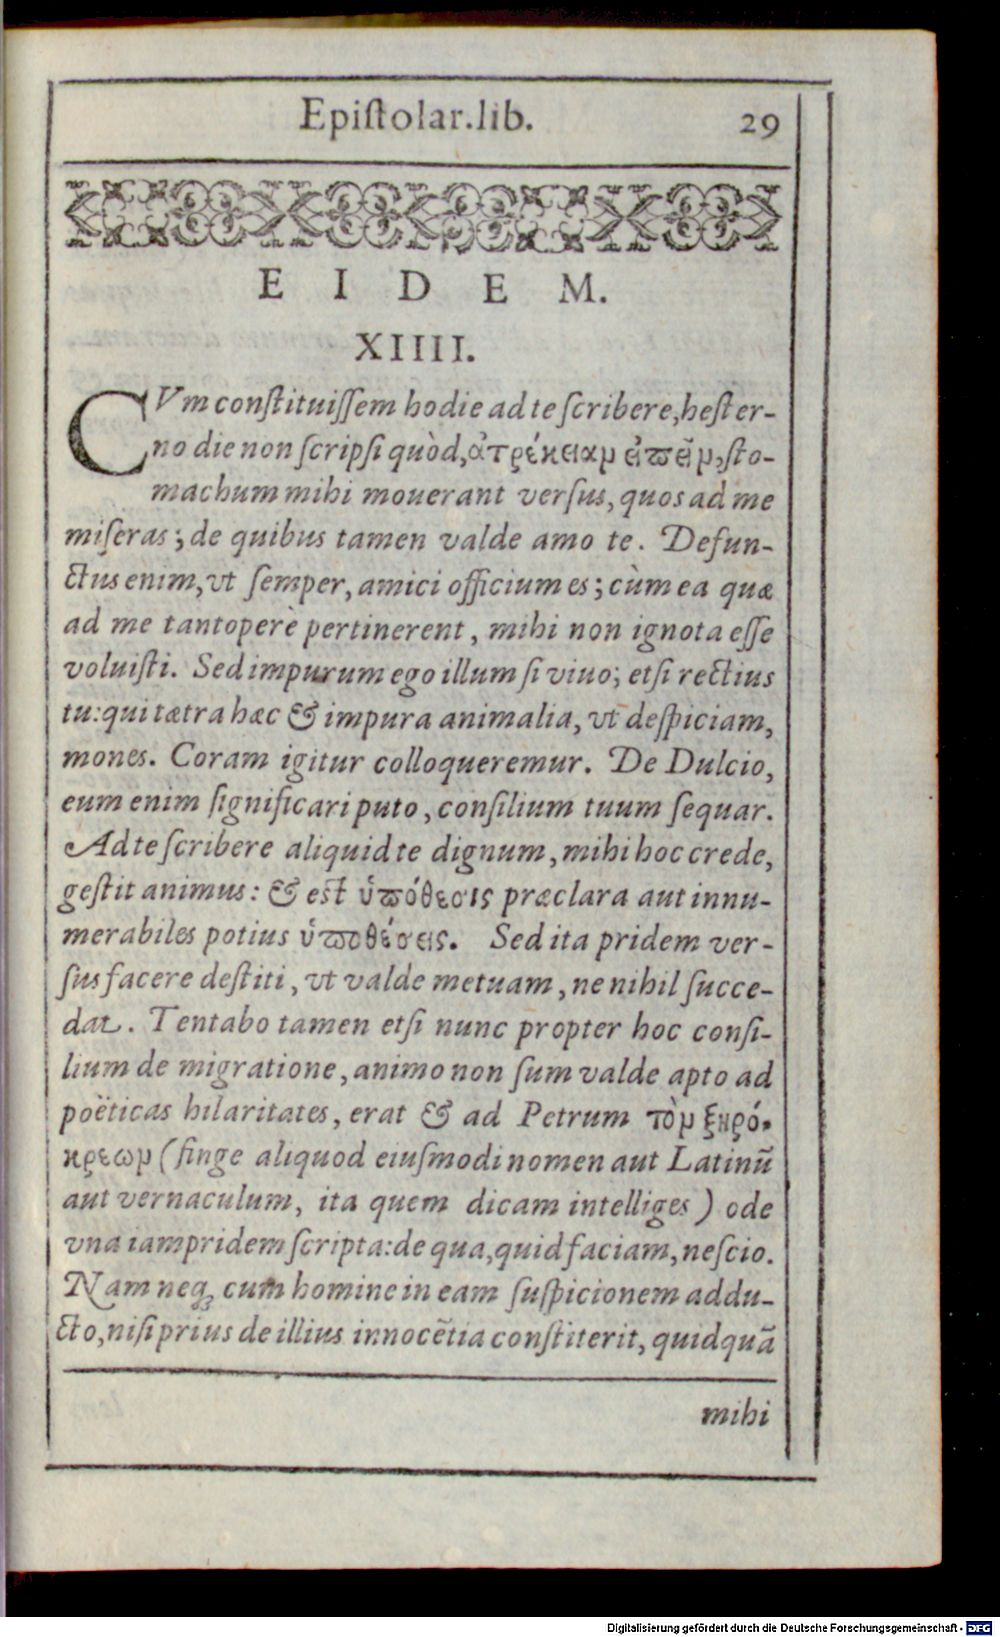 Epiſtolar.lib. 29
EIDEM.
XIIII.
CVm conſtituiſſem hodie ad te ſcribere, heſter-
no die non ſcripſi quòd, ἀτρέκειαμ εἰπεῖμ, ſto-
machum mihi mouerant verſus, quos ad me
miſeras; de quibus tamen valde amo te. Defun-
ctus enim, vt ſemper, amici officium es; cùm ea quæ
ad me tantoperè pertinerent, mihi non ignota eſſe
voluiſti. Sed impurum ego illum ſi viuo; etſi rectius
tu: qui tætra hæc & impura animalia, vt deſpiciam,
mones. Coram igitur colloqueremur. De Dulcio,
eum enim ſignificari puto, conſilium tuum ſequar.
Ad te ſcribere aliquid te dignum, mihi hoc crede,
geſtit animus: & eſt ὑπόθεσις præclara aut innu-
merabiles potius ὑποθέσεις. Sed ita pridem ver-
ſus facere deſtiti, vt valde metuam, ne nihil ſucce-
dat. Tentabo tamen etſi nunc propter hoc conſi-
lium de migratione, animo non ſum valde apto ad
poëticas hilaritates, erat & ad Petrum τὸμ ξηρό-
κρεωμ (finge aliquod eiuſmodi nomen aut Latinū
aut vernaculum, ita quem dicam intelliges) ode
vna iampridem ſcripta: de qua, quid faciam, neſcio.
Nam neq; cum homine in eam ſuſpicionem addu-
cto, niſi prius de illius innocētia conſtiterit, quidquã
mihi
Digitalisierung gefördert durch die Deutsche Forschungsgemeinschaft - DFG